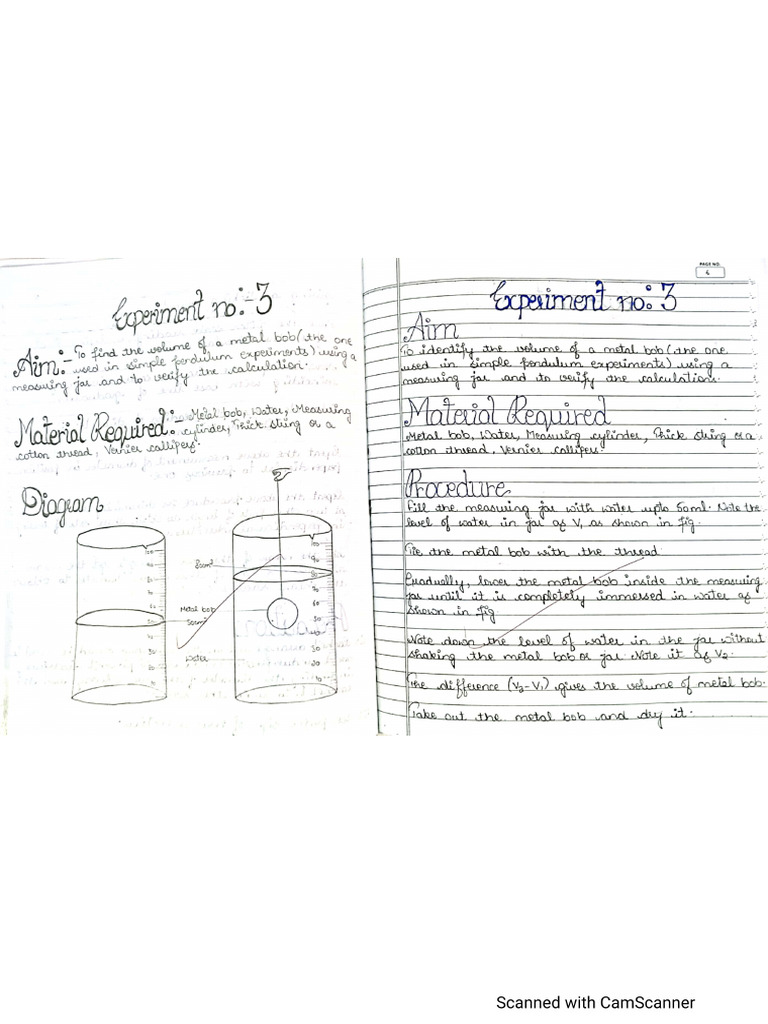 Experiment no:-3
Aim:- To find the volume of a metal bob (the one
used in simple pendulum experiments) using a
measuring jar and to verify the calculation.
Material Required:- Metal bob, Water, Measuring
cylinder, Thick string or a
cotton thread, Vernier callipers.
Diagram
80cm³
Metal bob
50cm³
Water
PAGE NO.
4
Experiment no: 3
Aim
To identify the volume of a metal bob (the one
used in simple pendulum experiments) using a
measuring jar and to verify the calculations.
Material Required
Metal bob, Water, Measuring cylinder, Thick string or a
cotton thread, Vernier callipers.
Procedure
Fill the measuring jar with water upto 50ml. Note the
level of water in jar as V₁ as shown in fig.
Tie the metal bob with the thread.
Gradually, lower the metal bob inside the measuring
jar until it is completely immersed in water as
shown in fig
Note down the level of water in the jar without
shaking the metal bob or jar. Note it as V₂.
The difference (V₂-V₁) gives the volume of metal bob.
Take out the metal bob and dry it.
Scanned with CamScanner